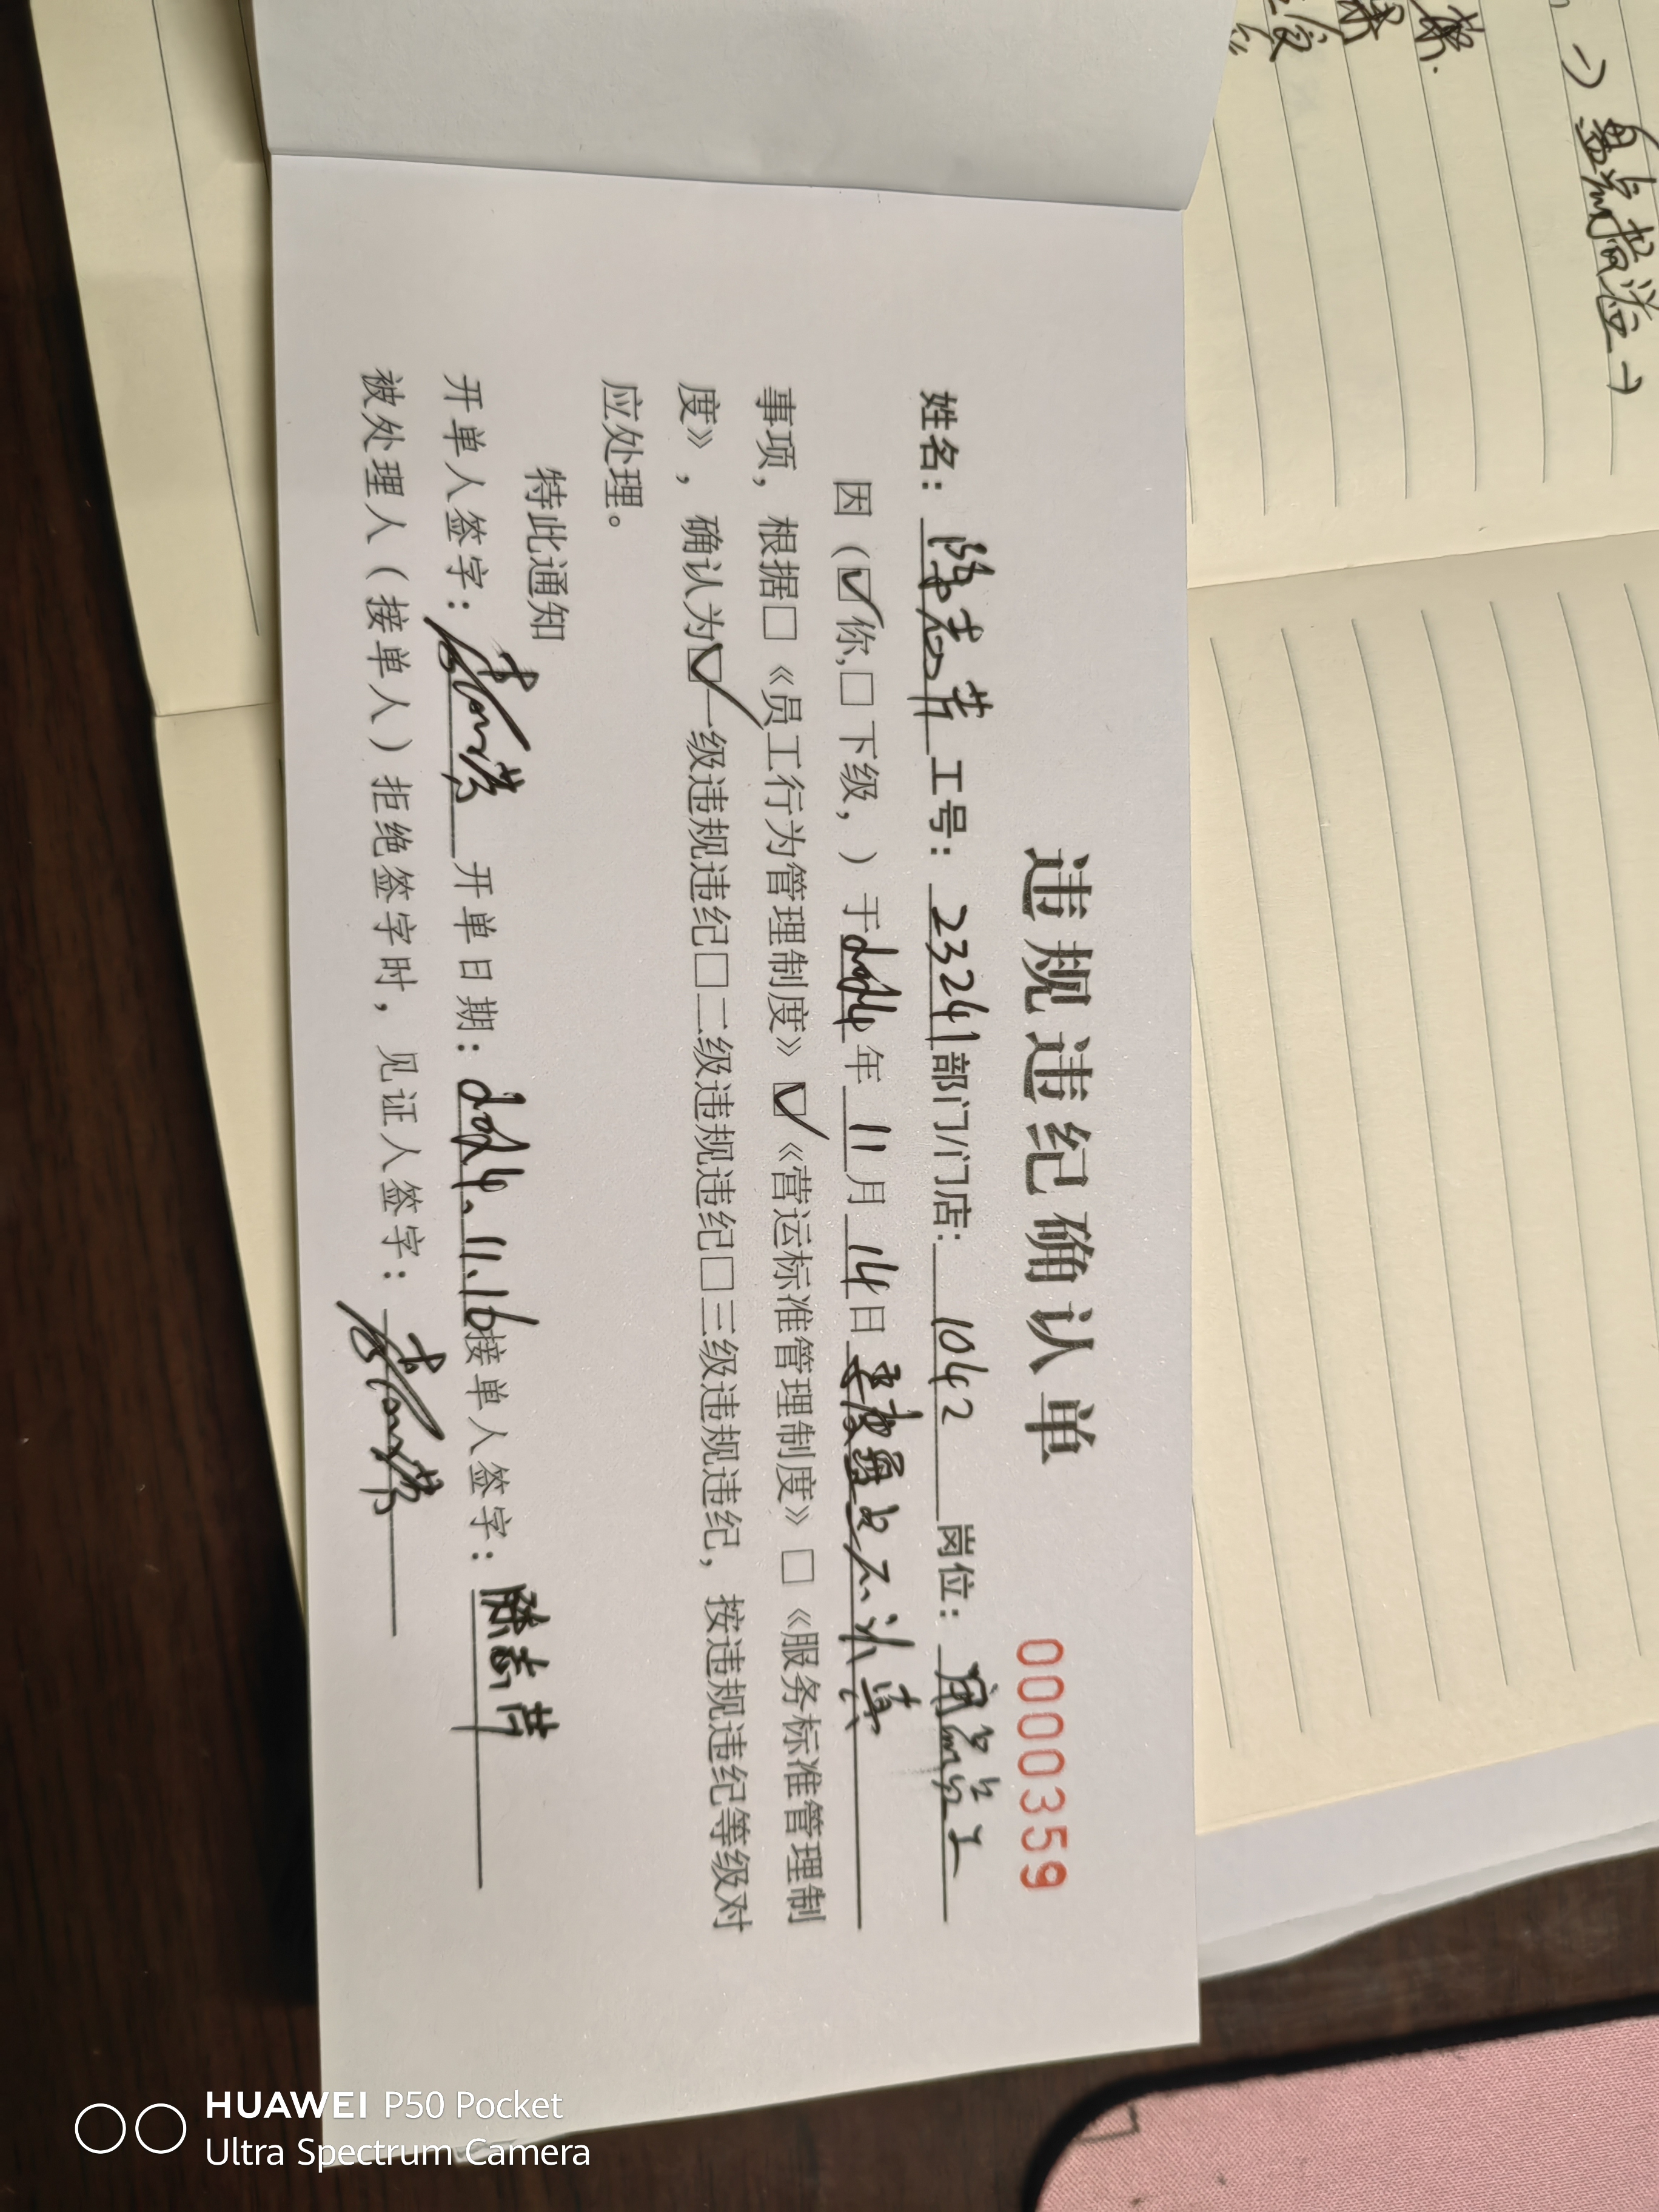 违规违纪确认单
0000359
姓名：陈志芳 工号：23241 部门/门店：1042 岗位：
因（☑你,☐下级，）于2024年11月14日
事项，根据☐《员工行为管理制度》☑《营运标准管理制度》☐《服务标准管理制
度》，确认为☑一级违规违纪☐二级违规违纪☐三级违规违纪，按违规违纪等级对
应处理。
特此通知
开单人签字： 开单日期：2024.11.16 接单人签字：陈志芳
被处理人（接单人）拒绝签字时，见证人签字：
HUAWEI P50 Pocket
Ultra Spectrum Camera